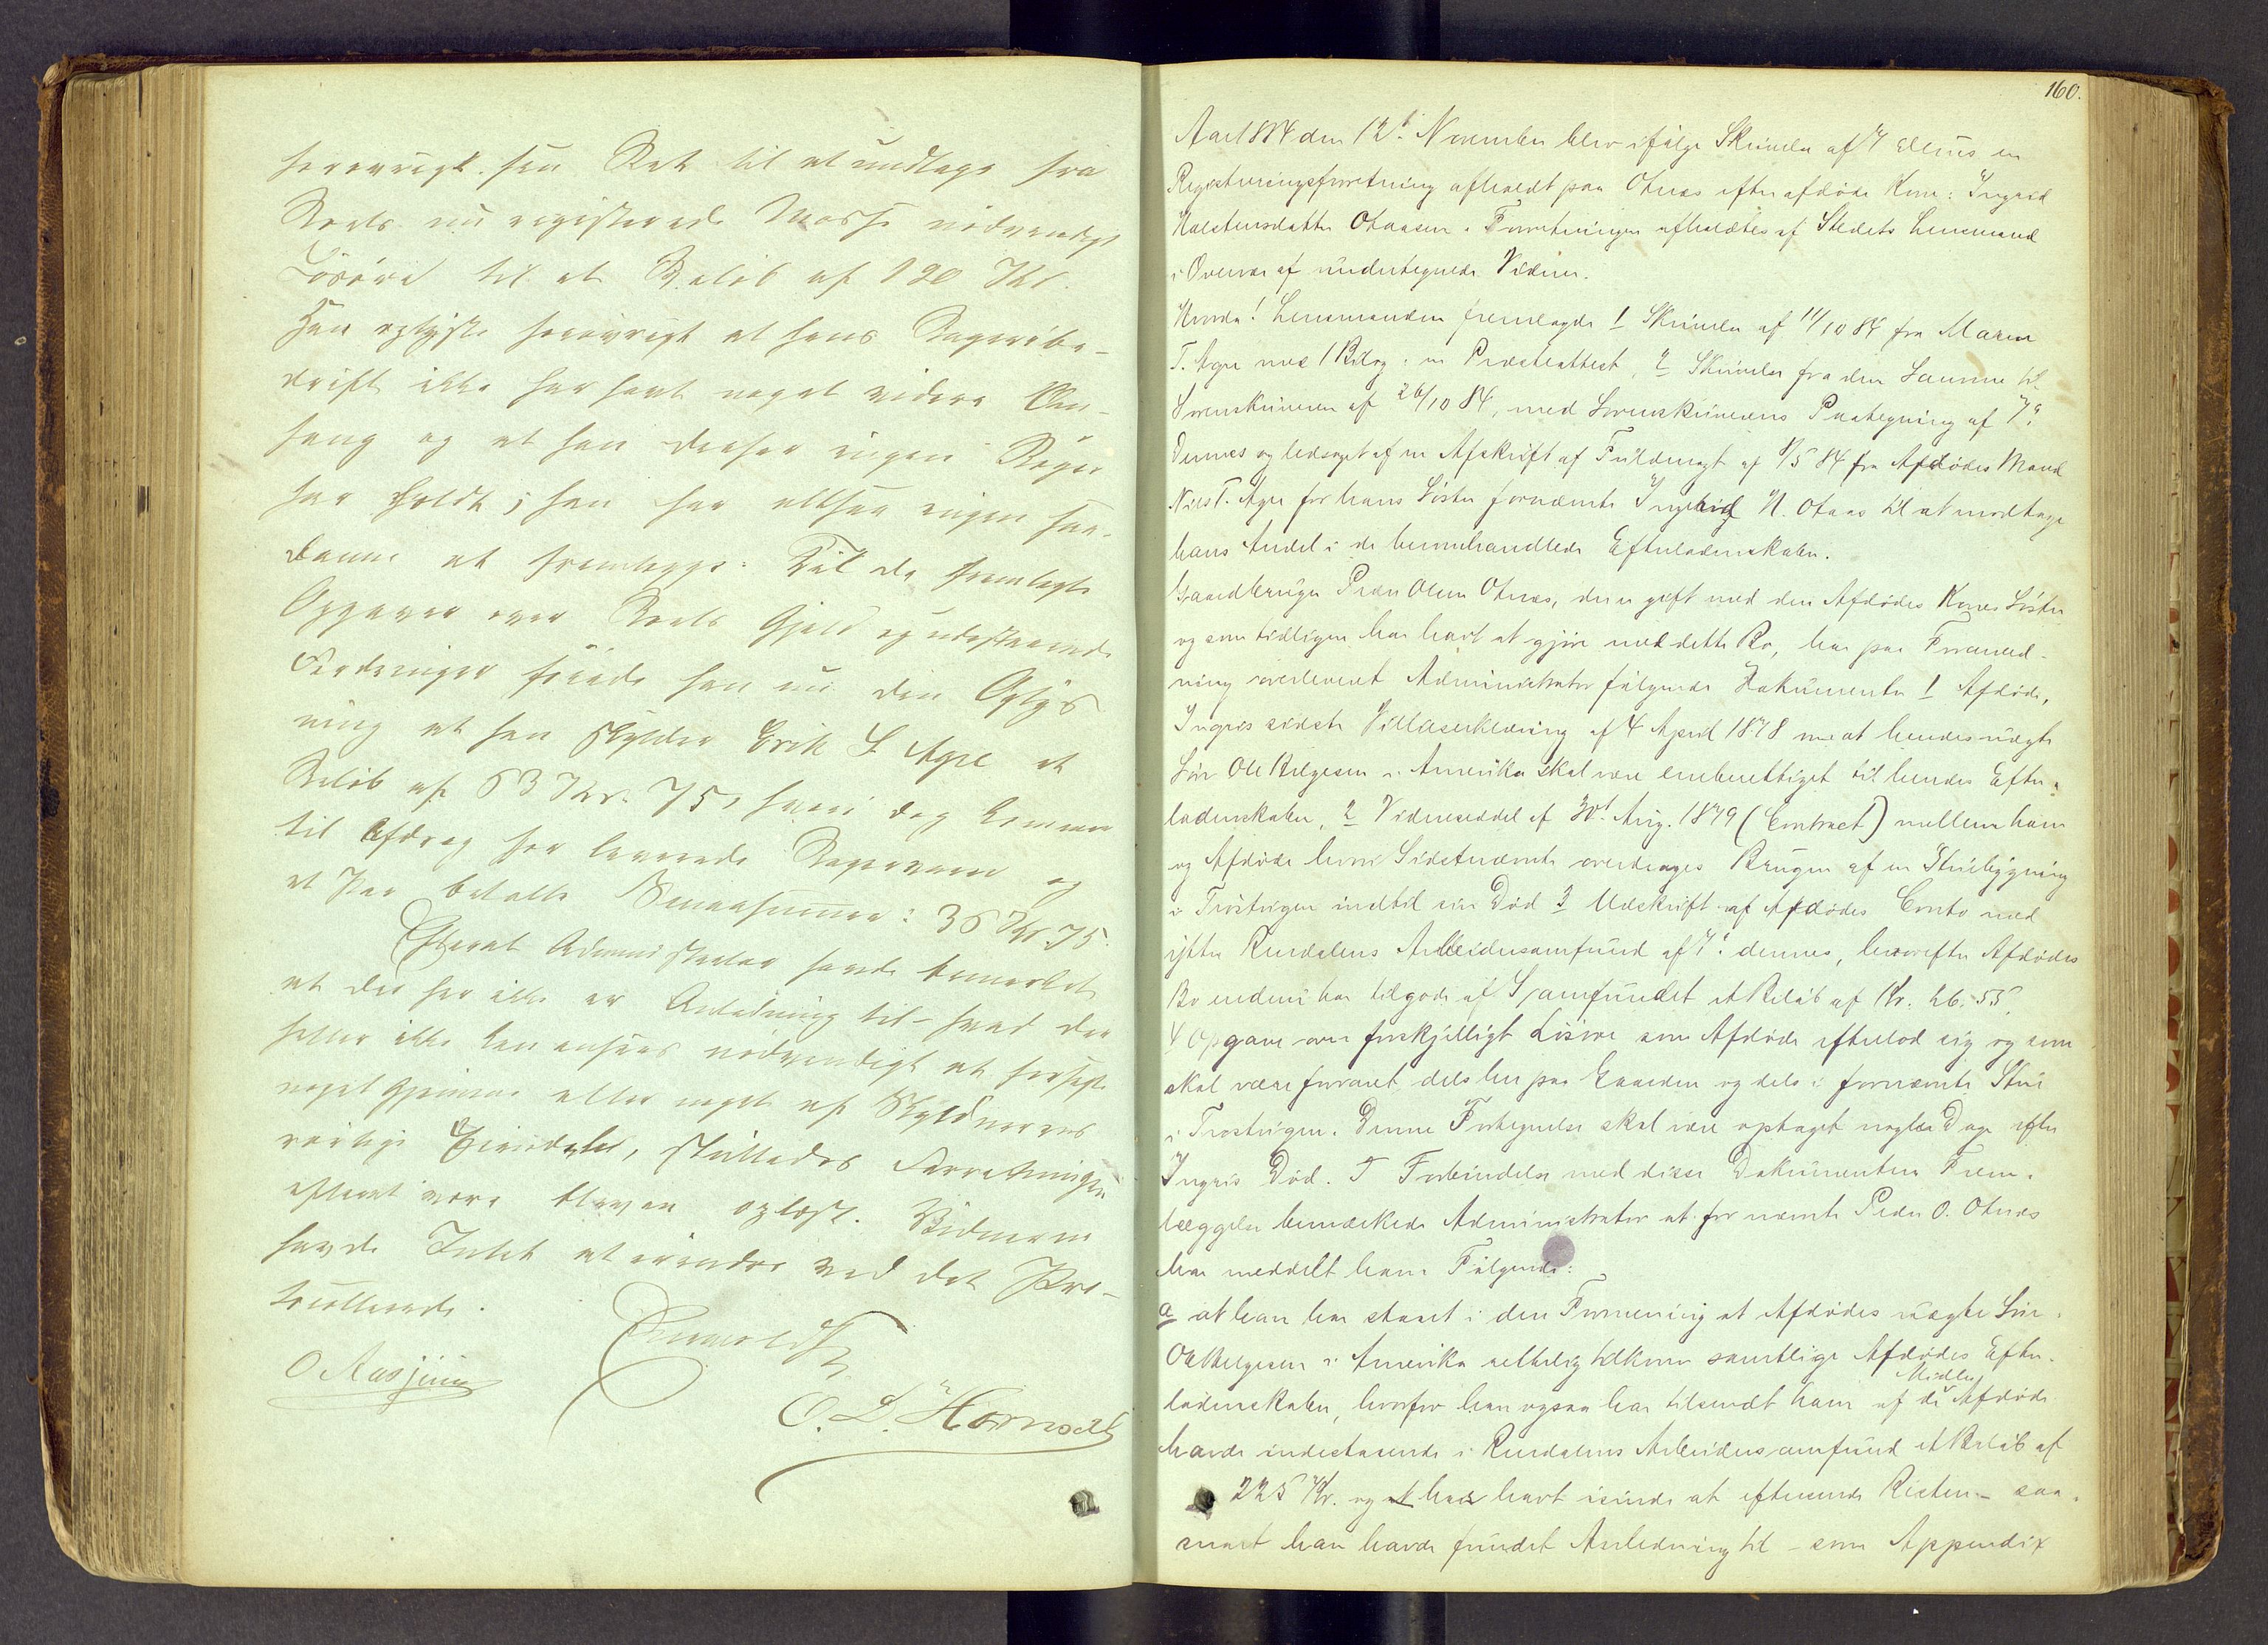 forøvrigt sin Ret til at undtage fra
Boets nu registrerede Masse nødvendigt
Løsøre til et Beløb af 120 Kr.
Han oplyste forøvrigt at hans Bageribe-
drift ikke har havt noget videre Om-
fang og at han derfor ingen Bøger
har holdt; han har altsaa ingen saa-
danne at fremlægge. Til de fremlagte
Opgaver over Boets Gjeld og udestaaende
Fordringer føiede han nu den Oplys-
ning at han skylder Erik S. Agre et
Beløb af 63 Kr. 75, hvori dog kommer
til Afdrag for leverede Bagervarer og
et Par betalte Smaasummer: 36 Kr. 75.
Efterat Administrator havde bemærket
at der her ikke er Anledning til – hvad der
heller ikke kan ansees nødvendigt at forsegle
noget Gjemme eller noget af Skyldnerens
rørlige Eiendele, sluttedes Forretningen
efterat være bleven oplæst. Vidnerne
havde Intet at erindre ved det Pro-
tocollerede.
O Aasjem
O. L. Hornseth
160.
Aar 1884 den 12t November blev ifølge Skrivelse af 7 ds en
Registreringsforretning afholdt paa Otnes efter afdøde Kone: Ingrid
Halstensdatter Otnesen. Forretningen afholdtes af Stedets Lensmand
i Overvær af undertegnede Vidner.
Hvorda! Lensmanden fremlagde 1 Skrivelse af 11/10 84 fra Maren
T. Agre med 1 Bilag: en Præsteattest, 2 Skrivelse fra den Samme til
Sorenskriveren af 26/10 84, med Sorenskriverens Paategning af 7de
Dennes og ledsaget af en Afskrift af Fuldmagt af 8/5 84 fra Afdødes Mand
Nils T. Agre for hans Søster fornævnte Ingebrig H. Otnes til at modtage
hans Andel i de heromhandlede Efterladenskaber.
Gaardbruger Peder Olsen Otnes, der er gift med den Afdødes Kones Søster
og som tidligere har havt at gjøre med dette Bo, har paa Foranled-
ning overleveret Administrator følgende Dokumenter 1 Afdøde,
Ingris sidste Villaserklæring af 4 April 1878 om at hendes uægte
Søn Ole Helgesen i Amerika skal være eneberettiget til hendes Efter-
ladenskaber, 2 Vidneseddel af 30t Aug. 1879 (Contract) mellem ham
og Afdøde hvor Sidstnævnte overdrages Brugen af en Stuebygning
i Trøstvigen indtil sin Død 3 Udskrift af Afdødes Conto med
ytre Rendalens Arbeidersamfund af 7de dennes, hvorefter Afdødes
Bo endnu har tilgode af Samfundet et Beløb af Kr. 26. 55,
4 Opgave over forskjelligt Løsøre som Afdøde efterlod sig og som
skal være forvaret dels her paa Gaarden og dels i fornævnte Stue
i Trøstvigen. Denne Fortegnelse skal være optaget nogle Dage efter
Ingris Død. I Forbindelse med disse Dokumenters Frem-
læggelse bemærkede Administrator at fornævnte Peder O. Otnes
har meddelt ham Følgende:
a at han har staaet i den Formening at Afdødes uægte Søn
Ole Helgesen i Amerika retteligt tilkom samtlige Afdødes Efter-
ladenskaber, hvorfor han ogsaa har tilsendt ham af de Midler Afdøde
havde indestaaende i Rendalens Arbeidersamfund et Beløb af
225 Kr. og at han havt isinde at eftersende Resten – saa-
snart han havde fundet Anledning til – som Appendix